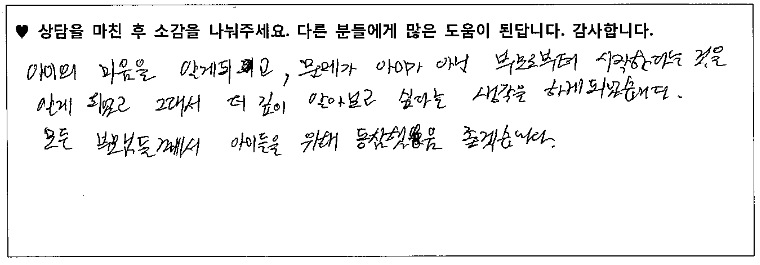 ♥ 상담을 마친 후 소감을 나눠주세요. 다른 분들에게 많은 도움이 된답니다. 감사합니다.
아이의 마음을 알게되었고, 문제가 아이가 아닌 부모로부터 시작한다는 것을
알게 되었고 그래서 더 깊이 알아보고 싶다는 생각을 하게되었습니다.
모든 부모님들께서 아이들을 위해 동참했으면 좋겠습니다.